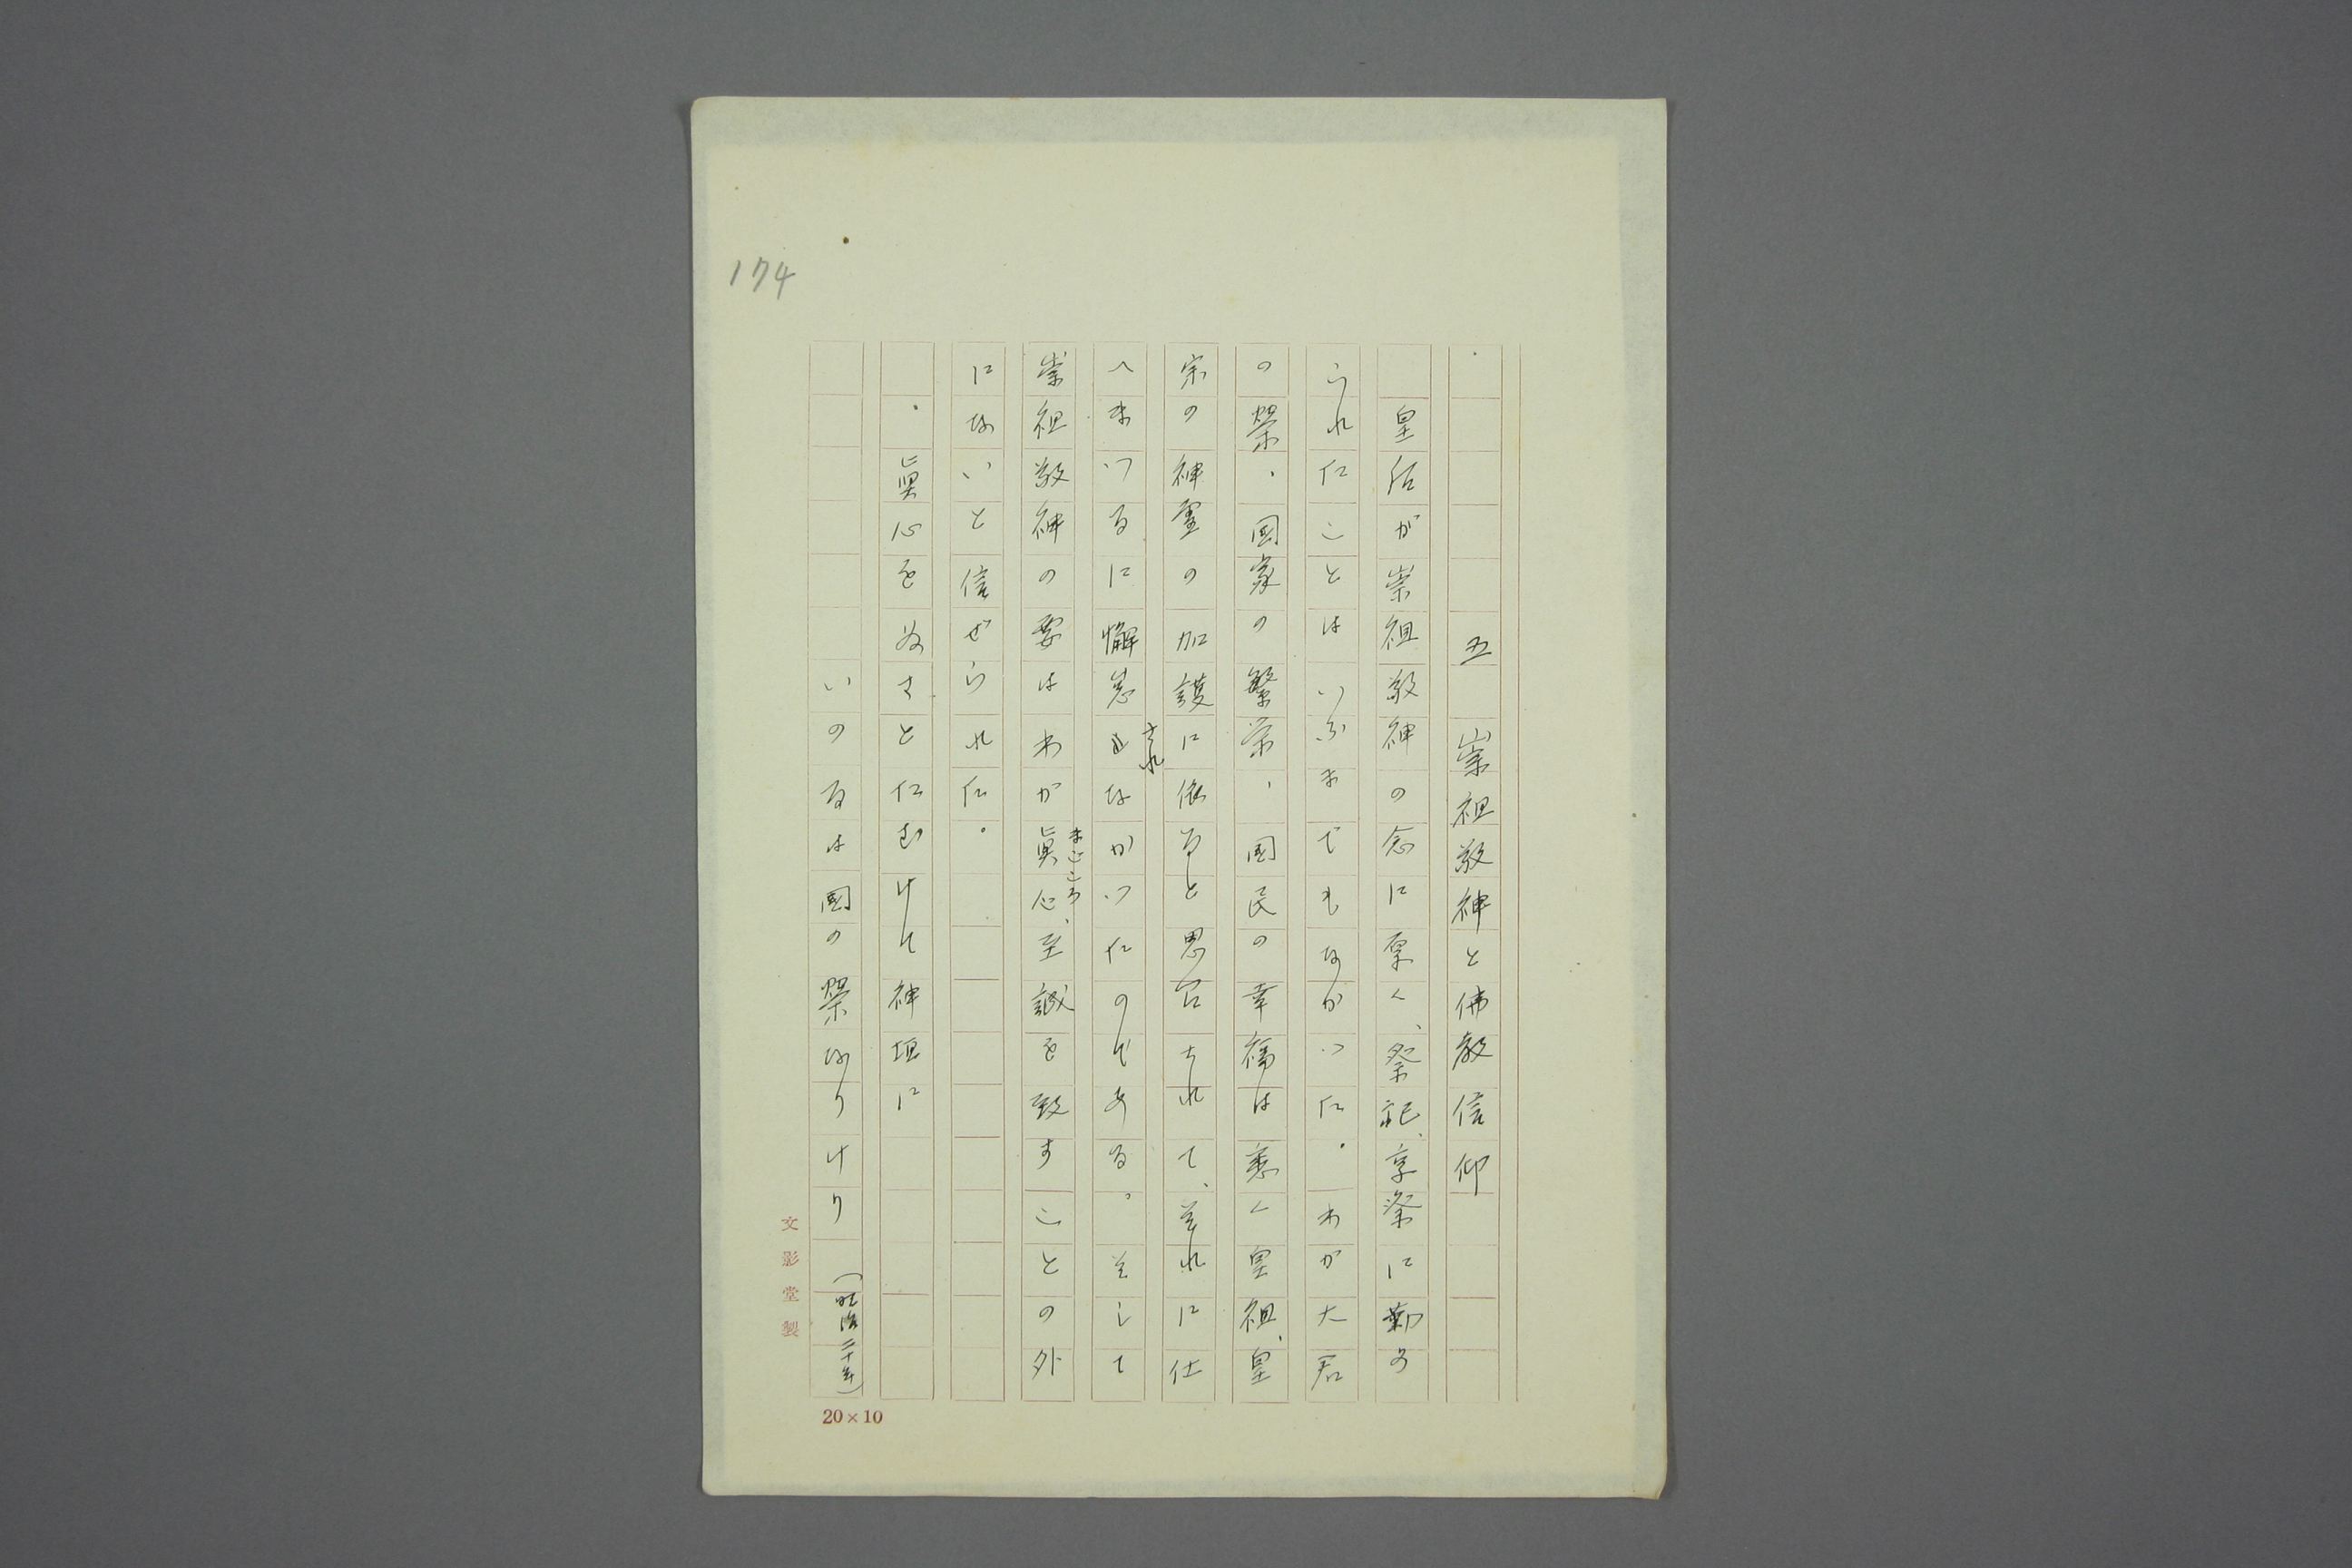 174
五　崇祖敬神と佛教信仰
皇后が崇祖敬神の念に厚く、祭祀、享祭に勤め
られたことはいふまでもなかつた。わが大君
の榮、國家の繁栄、国民の幸福は悉く皇祖、皇
宗の神霊の加護に依ると思召されて、それに仕
へまつるに懈怠されなかつたのである。そして
崇祖敬神の要はわが眞心、至誠を致すことの外
まごころ
にないと信ぜられた。
眞心をぬさとたむけて神垣に
いのるは國の榮なりけり（明治二十年）
文影堂製
20×10